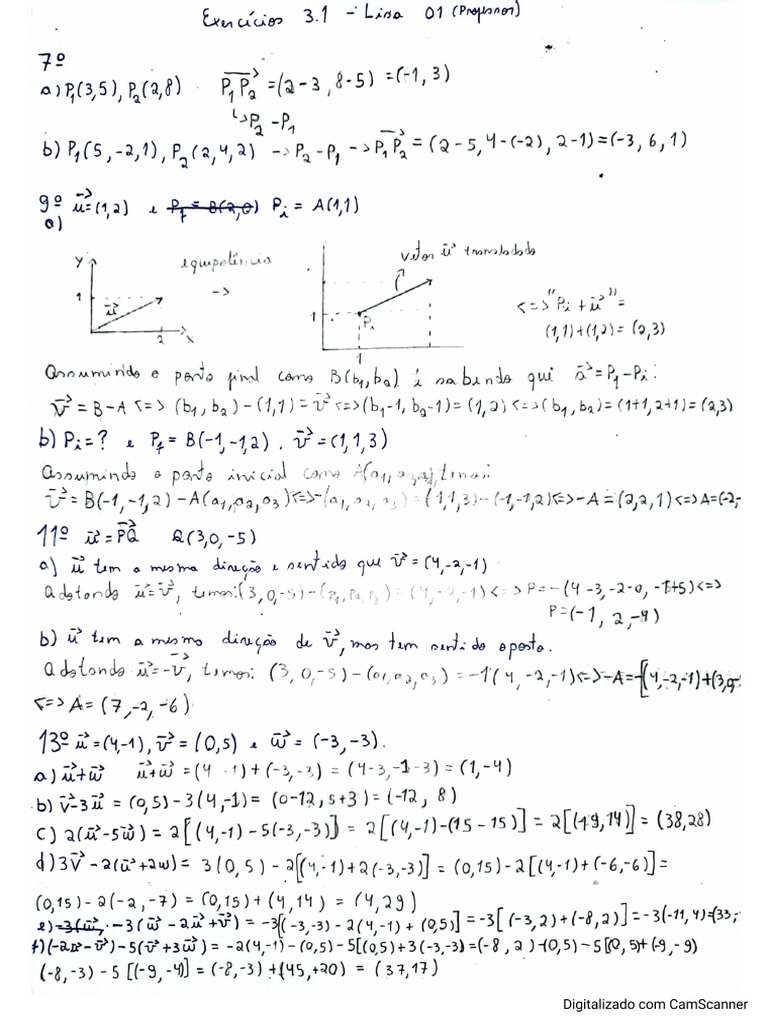 Exercícios 3.1 - Lisa 01 (Professor)
7º
a) P₁(3,5), P₂(2,8) P₁P₂ = (2-3, 8-5) = (-1, 3)
↳ P₂ - P₁
b) P₁(5, -2, 1), P₂(2, 4, 2) -> P₂ - P₁ -> P₁P₂ = (2-5, 4-(-2), 2-1) = (-3, 6, 1)
9º u⃗ = (1,2) e P_f = B(2,0) P_i = A(1,1)
a)
y equipolência vetor u⃗ transladado
1 u⃗ -> 1 P_i <=> "P_i + u⃗" =
2 x 1 (1,1)+(1,2) = (2,3)
Assumindo o ponto final como B(b₁, b₂) e sabendo que u⃗ = P_f - P_i:
v⃗ = B-A <=> (b₁, b₂) - (1,1) = v⃗ <=> (b₁-1, b₂-1) = (1,2) <=> (b₁, b₂) = (1+1, 2+1) = (2,3)
b) P_i = ? e P_f = B(-1,-1,2). v⃗ = (1,1,3)
Assumindo o ponto inicial como A(a₁, a₂, a₃), temos:
v⃗ = B(-1,-1,2) - A(a₁, a₂, a₃) <=> -(a₁, a₂, a₃) = (1,1,3) - (-1,-1,2) <=> -A = (2,2,1) <=> A = (-2,-
11º u⃗ = PQ Q(3,0,-5)
a) u⃗ tem a mesma direção e sentido que v⃗ = (4,-2,-1)
Adotando u⃗ = v⃗, temos: (3,0,-5) - (P₁, P₂, P₃) = (4,-2,-1) <=> P = -(4-3, -2-0, -1+5) <=>
P = (-1, 2, -4)
b) u⃗ tem a mesma direção de v⃗, mas tem sentido oposto.
Adotando u⃗ = -v⃗, temos: (3, 0, -5) - (a₁, a₂, a₃) = -1(4, -2, -1) <=> -A = -[(4,-2,-1)+(3,0,-
<=> A = (7, -2, -6)
13º u⃗ = (4,-1), v⃗ = (0,5) e w⃗ = (-3, -3).
a) u⃗+w⃗ u⃗+w⃗ = (4 -1) + (-3, -3) = (4-3, -1-3) = (1,-4)
b) v⃗-3u⃗ = (0,5) - 3(4,-1) = (0-12, 5+3) = (-12, 8)
c) 2(u⃗-5w⃗) = 2[(4,-1) - 5(-3,-3)] = 2[(4,-1)-(15-15)] = 2[(19,14)] = (38,28)
d) 3v⃗ - 2(u⃗+2w) = 3(0,5) - 2[(4,-1)+2(-3,-3)] = (0,15) - 2[(4,-1)+(-6,-6)] =
(0,15) - 2(-2, -7) = (0,15) + (4,14) = (4,29)
e) -3(w⃗ -3(w⃗ - 2u⃗ + v⃗) = -3[(-3,-3) - 2(4,-1) + (0,5)] = -3[(-3,2)+(-8,2)] = -3(-11,4) = (33,-
f) (-2u⃗-v⃗) - 5(v⃗+3w⃗) = -2(4,-1) - (0,5) - 5[(0,5)+3(-3,-3) = (-8,2) - (0,5) - 5[(0,5)+(-9,-9)
(-8,-3) - 5[(-9,-4)] = (-8,-3) + (45,+20) = (37,17)
Digitalizado com CamScanner